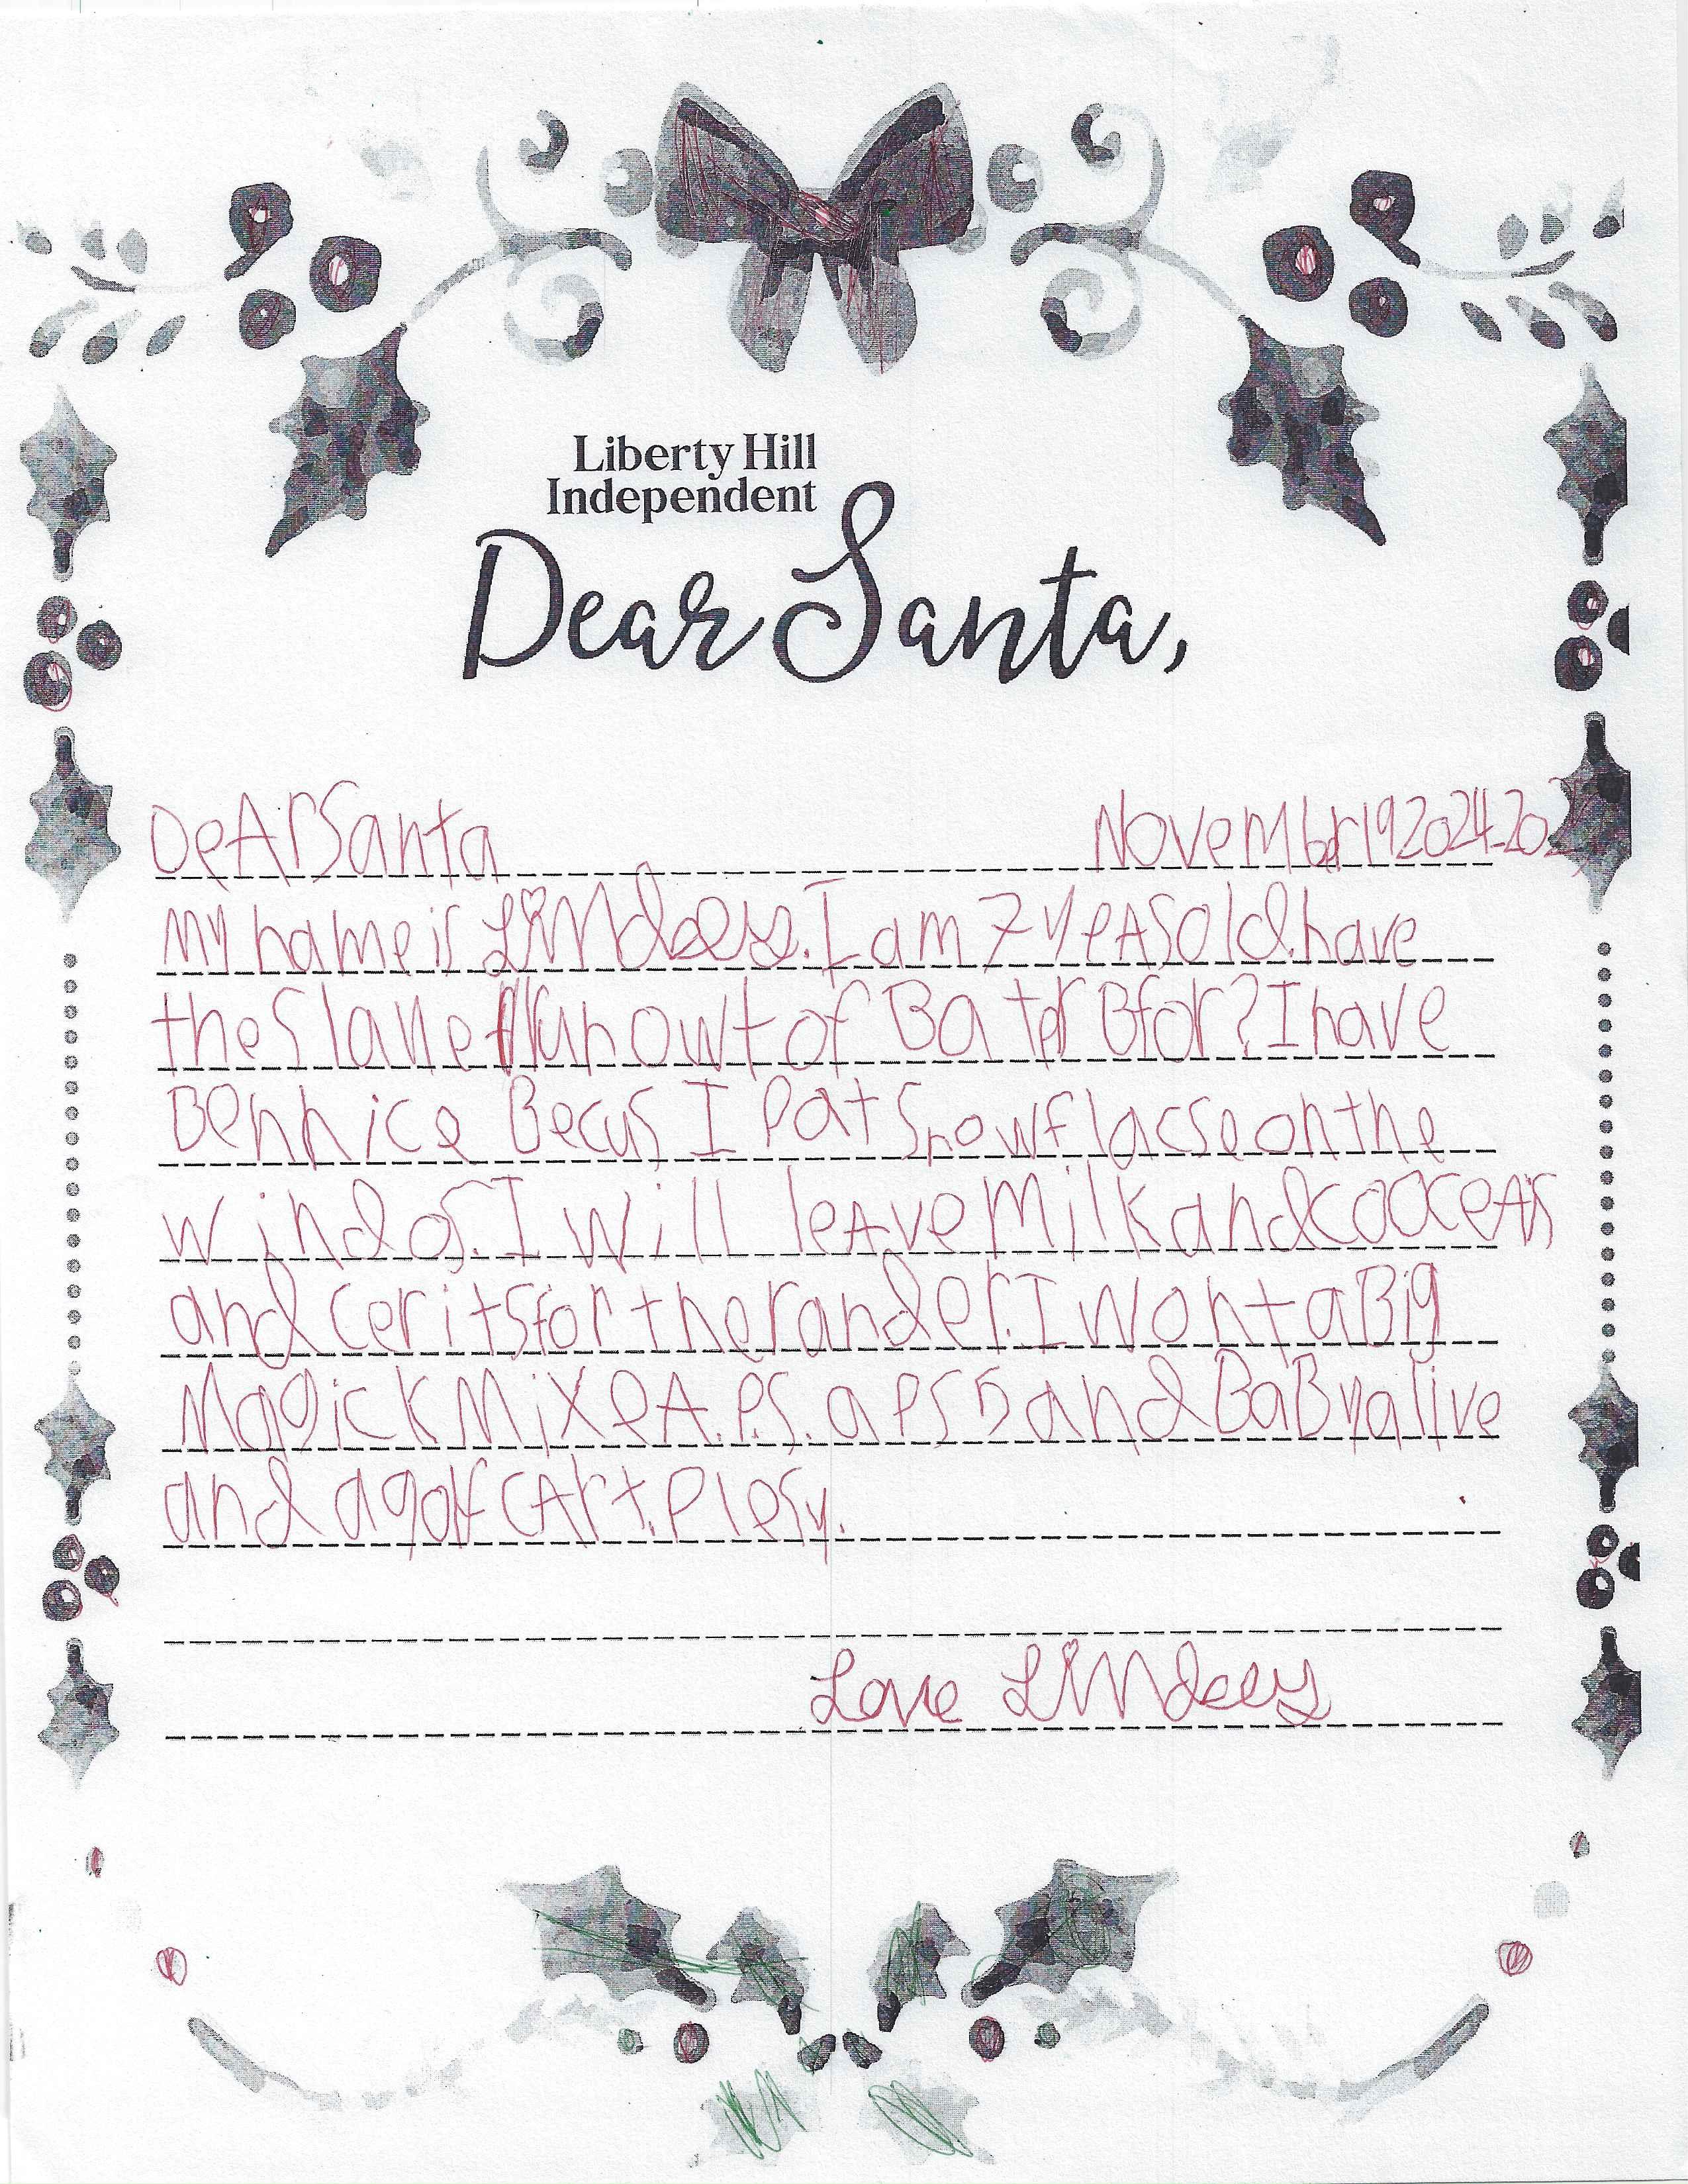 Liberty Hill
Independent
Dear Santa,
DeArSanta Novembr192024-202
My name is Lindsey. I am 7 yeAs old. have
the Slaye run owt of Bater Bfor? I have
Benn ice Becus I Pat Snowflacse on the
windos. I will leAve Milk and cooceAs
and cerits for the rander. I wont a Big
Magick MixeA. P.S. a PS5 and BaBy alive
and a golf cArt. Plesy.
Love Lindsey